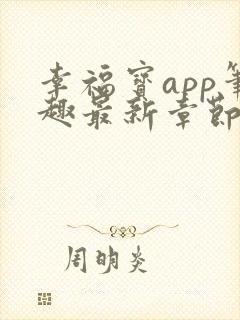 幸福宝app笔
趣最新章節
周明炎